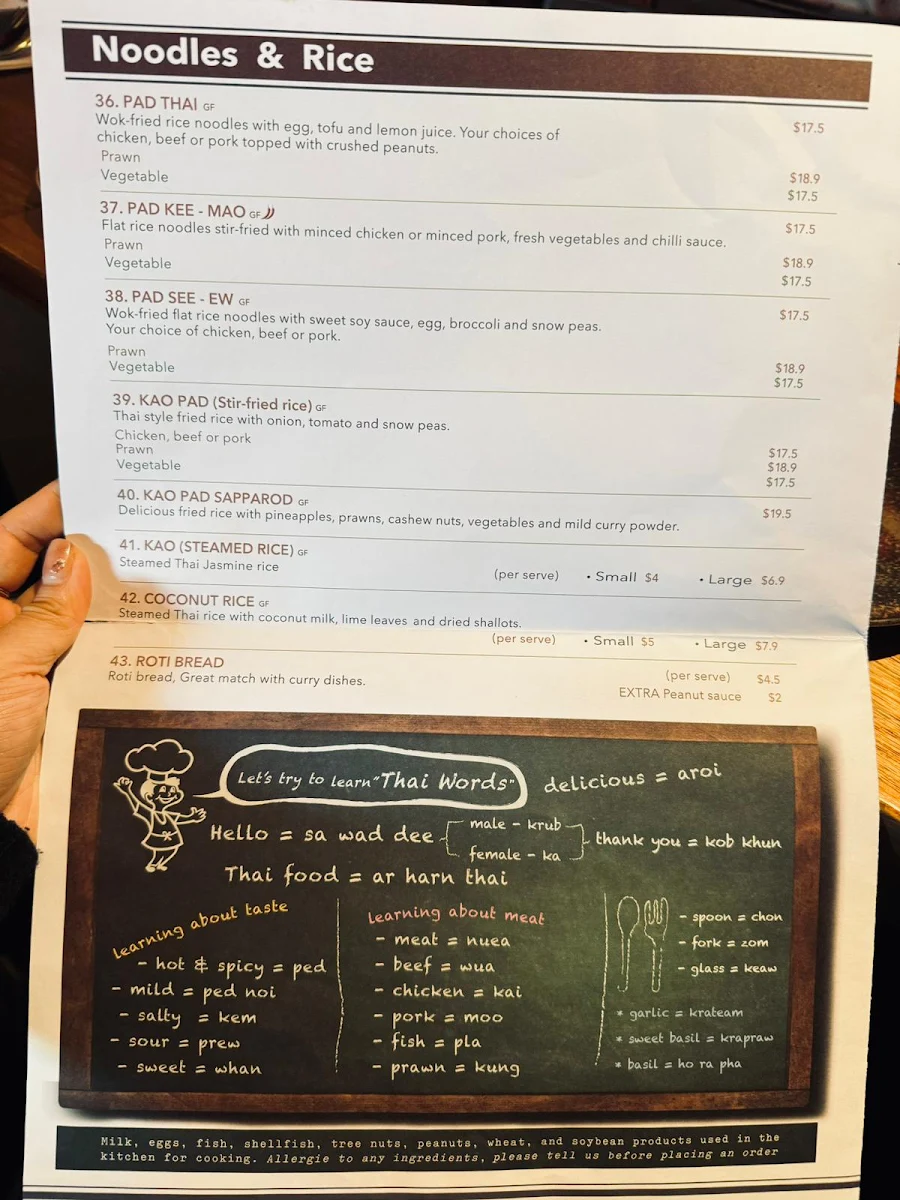 Noodles & Rice
36. PAD THAI GF
Wok-fried rice noodles with egg, tofu and lemon juice. Your choices of $17.5
chicken, beef or pork topped with crushed peanuts.
Prawn $18.9
Vegetable $17.5
37. PAD KEE - MAO GF
Flat rice noodles stir-fried with minced chicken or minced pork, fresh vegetables and chilli sauce. $17.5
Prawn $18.9
Vegetable $17.5
38. PAD SEE - EW GF
Wok-fried flat rice noodles with sweet soy sauce, egg, broccoli and snow peas. $17.5
Your choice of chicken, beef or pork.
Prawn $18.9
Vegetable $17.5
39. KAO PAD (Stir-fried rice) GF
Thai style fried rice with onion, tomato and snow peas.
Chicken, beef or pork $17.5
Prawn $18.9
Vegetable $17.5
40. KAO PAD SAPPAROD GF
Delicious fried rice with pineapples, prawns, cashew nuts, vegetables and mild curry powder. $19.5
41. KAO (STEAMED RICE) GF
Steamed Thai Jasmine rice (per serve) • Small $4 • Large $6.9
42. COCONUT RICE GF
Steamed Thai rice with coconut milk, lime leaves and dried shallots.
(per serve) • Small $5 • Large $7.9
43. ROTI BREAD
Roti bread, Great match with curry dishes. (per serve) $4.5
EXTRA Peanut sauce $2
Let's try to learn "Thai Words" delicious = aroi
Hello = sa wad dee male - krub thank you = kob khun
female - ka
Thai food = ar harn thai
learning about taste
- hot & spicy = ped
- mild = ped noi
- salty = kem
- sour = prew
- sweet = whan
learning about meat
- meat = nuea
- beef = wua
- chicken = kai
- pork = moo
- fish = pla
- prawn = kung
- spoon = chon
- fork = zom
- glass = keaw
* garlic = krateam
* sweet basil = krapraw
* basil = ho ra pha
Milk, eggs, fish, shellfish, tree nuts, peanuts, wheat, and soybean products used in the
kitchen for cooking. Allergie to any ingredients, please tell us before placing an order